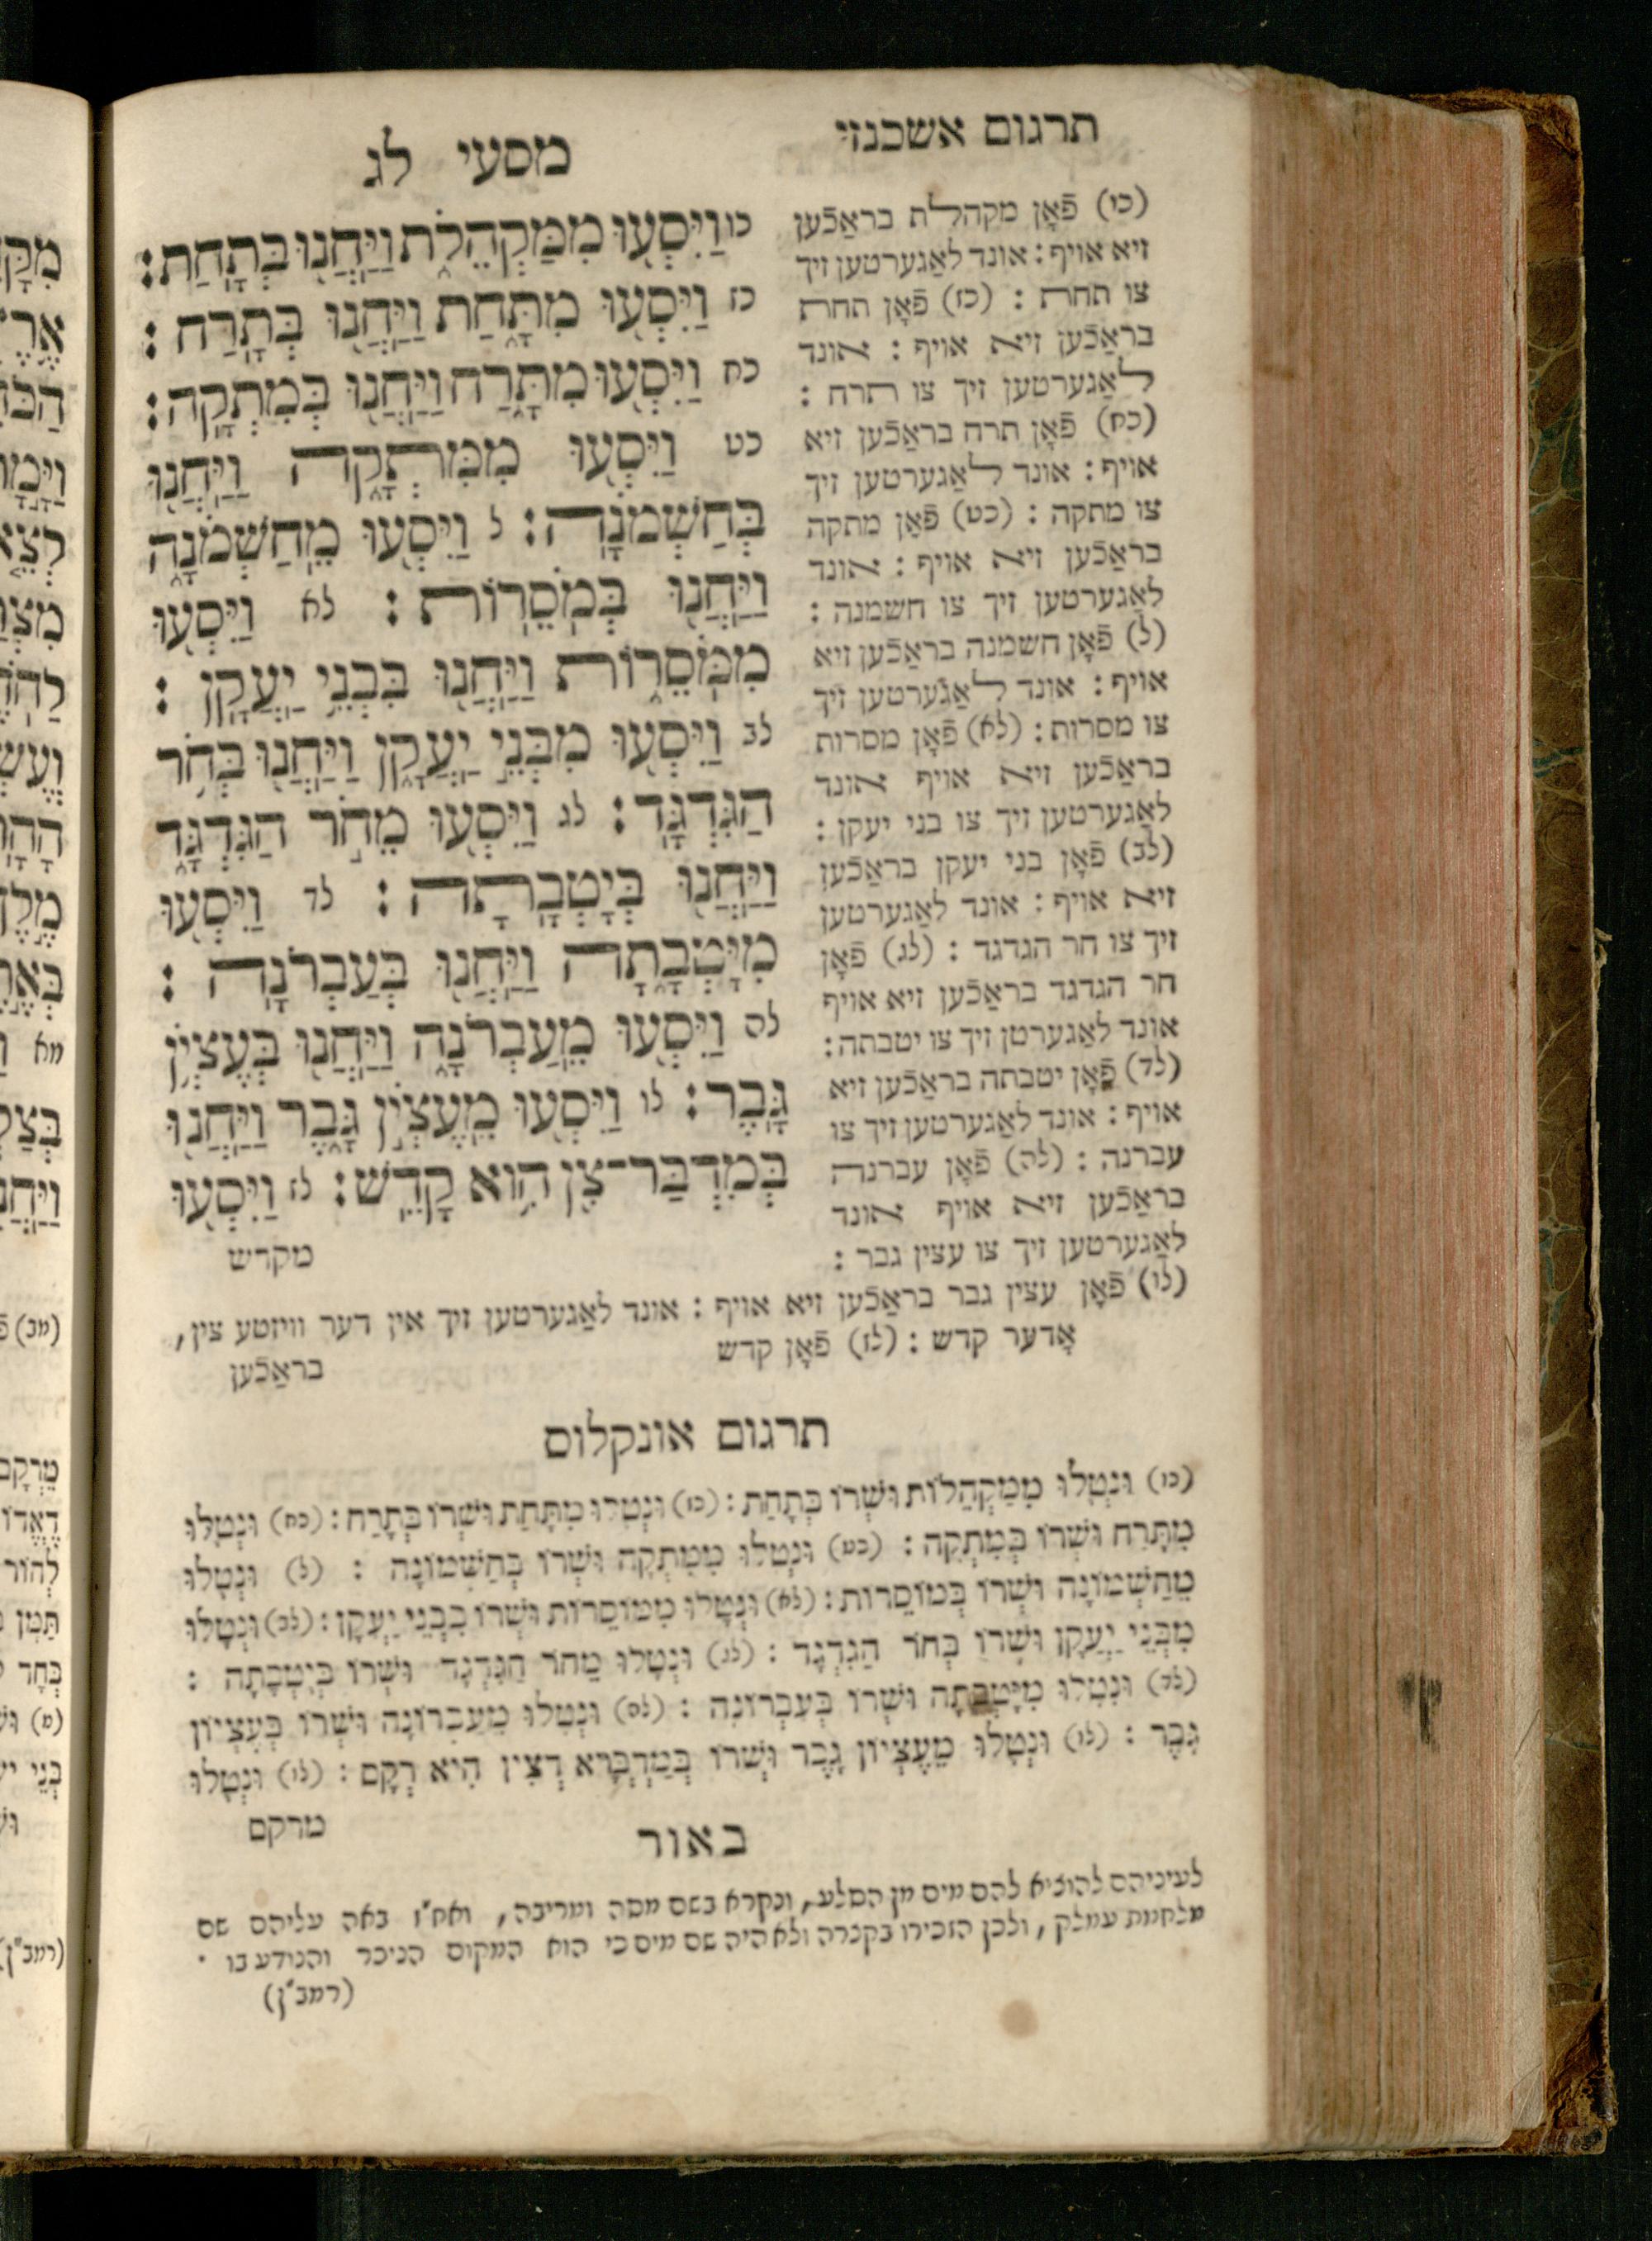 תרגום אשכנזי
מסעי לג
כו וַיִּסְע֖וּ מִמַּקְהֵלֹ֑ת וַֽיַּחֲנ֖וּ בְּתָֽחַת׃
כז וַיִּסְע֖וּ מִתָּ֑חַת וַֽיַּחֲנ֖וּ בְּתָֽרַח׃
כח וַיִּסְע֖וּ מִתָּ֑רַח וַֽיַּחֲנ֖וּ בְּמִתְקָֽה׃
כט וַיִּסְע֖וּ מִמִּתְקָ֑ה וַֽיַּחֲנ֖וּ
בְּחַשְׁמֹנָֽה׃ ל וַיִּסְע֖וּ מֵֽחַשְׁמֹנָ֑ה
וַֽיַּחֲנ֖וּ בְּמֹֽסֵרֽוֹת׃ לא וַיִּסְע֖וּ
מִמֹּֽסֵר֑וֹת וַֽיַּחֲנ֖וּ בִּבְנֵ֥י יַֽעֲקָֽן׃
לב וַיִּסְע֖וּ מִבְּנֵ֣י יַֽעֲקָ֑ן וַֽיַּחֲנ֖וּ בְּחֹ֥ר
הַגִּדְגָּֽד׃ לג וַיִּסְע֖וּ מֵחֹ֣ר הַגִּדְגָּ֑ד
וַֽיַּחֲנ֖וּ בְּיָטְבָֽתָה׃ לד וַיִּסְע֖וּ
מִיָּטְבָ֑תָה וַֽיַּחֲנ֖וּ בְּעַבְרֹנָֽה׃
לה וַיִּסְע֖וּ מֵֽעַבְרֹנָ֑ה וַֽיַּחֲנ֖וּ בְּעֶצְיֹ֥ן
גָּֽבֶר׃ לו וַיִּסְע֖וּ מֵֽעֶצְיֹ֣ן גָּ֑בֶר וַֽיַּחֲנ֥וּ
בְּמִדְבַּר־צִ֖ן הִ֥וא קָדֵֽשׁ׃ לז וַיִּסְע֖וּ
מקדש
(כו) פֿאָן מקהלת בראַכֿען
זיא אויף: אונד לאַגערטען זיך
צו תחת: (כז) פֿאָן תחת
בראַכֿען זיא אויף: אונד
לאַגערטען זיך צו תרח:
(כח) פֿאָן תרח בראַכֿען זיא
אויף: אונד לאַגערטען זיך
צו מתקה: (כט) פֿאָן מתקה
בראַכֿען זיא אויף: אונד
לאַגערטען זיך צו חשמנה:
(ל) פֿאָן חשמנה בראַכֿען זיא
אויף: אונד לאַגערטען זיך
צו מסרות: (לא) פֿאָן מסרות
בראַכֿען זיא אויף אונד
לאַגערטען זיך צו בני יעקן:
(לב) פֿאָן בני יעקן בראַכֿען
זיא אויף: אונד לאַגערטען
זיך צו חר הגדגד: (לג) פֿאָן
חר הגדגד בראַכֿען זיא אויף
אונד לאַגערטן זיך צו יטבתה:
(לד) פֿאָן יטבתה בראַכֿען זיא
אויף: אונד לאַגערטען זיך צו
עברנה: (לה) פֿאָן עברנה
בראַכֿען זיא אויף אונד
לאַגערטען זיך צו עצין גבר:
(לו) פֿאָן עצין גבר בראַכֿען זיא אויף: אונד לאַגערטען זיך אין דער וויזטע צין,
אָדער קדש: (לז) פֿאָן קדש
בראַכֿען
תרגום אונקלוס
(כו) וּנְטָלוּ מִמַּקְהֵלוֹת וּשְׁרוֹ בְּתָחַת: (כז) וּנְטָלוּ מִתָּחַת וּשְׁרוֹ בְּתָרַח: (כח) וּנְטָלוּ
מִתָּרַח וּשְׁרוֹ בְּמִתְקָה: (כט) וּנְטָלוּ מִמִּתְקָה וּשְׁרוֹ בְּחַשְׁמוֹנָה: (ל) וּנְטָלוּ
מֵחַשְׁמוֹנָה וּשְׁרוֹ בְּמוֹסֵרוֹת: (לא) וּנְטָלוּ מִמּוֹסֵרוֹת וּשְׁרוֹ בִּבְנֵי יַעֲקָן: (לב) וּנְטָלוּ
מִבְּנֵי יַעֲקָן וּשְׁרוֹ בְּחֹר הַגִּדְגָּד: (לג) וּנְטָלוּ מֵחֹר הַגִּדְגָּד וּשְׁרוֹ בְּיָטְבָתָה:
(לד) וּנְטָלוּ מִיָּטְבָתָה וּשְׁרוֹ בְּעַבְרוֹנָה: (לה) וּנְטָלוּ מֵעַבְרוֹנָה וּשְׁרוֹ בְּעֶצְיוֹן
גָּבֶר: (לו) וּנְטָלוּ מֵעֶצְיוֹן גָּבֶר וּשְׁרוֹ בְּמַדְבְּרָא דְצִין הִיא רְקָם: (לז) וּנְטָלוּ
מרקם
באור
לעיניהם להוציא להם מים מן הסלע, ונקרא בשם מסה ומריבה, ואח"ז באה עליהם שם
מלחמת עמלק, ולכן הזכירו בקצרה ולא היה שם מים כי הוא המקום הניכר והנודע בו.
(רמב"ן)